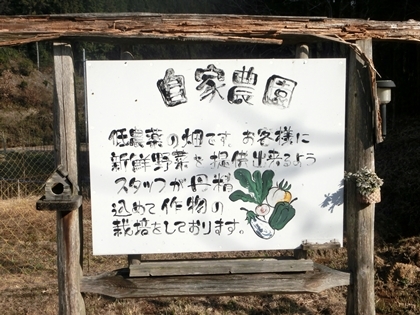 自家農園
低農薬の畑です。お客様に
新鮮野菜を提供出来るよう
スタッフが丹精
込めて作物の
栽培をしております。